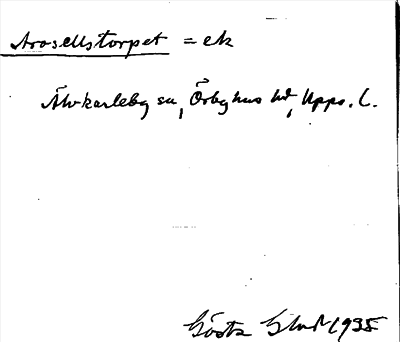 Arosellstorpet = ek
Älvkarleby sn, Örbyhus hd, Upps. L.
Gösta 1935